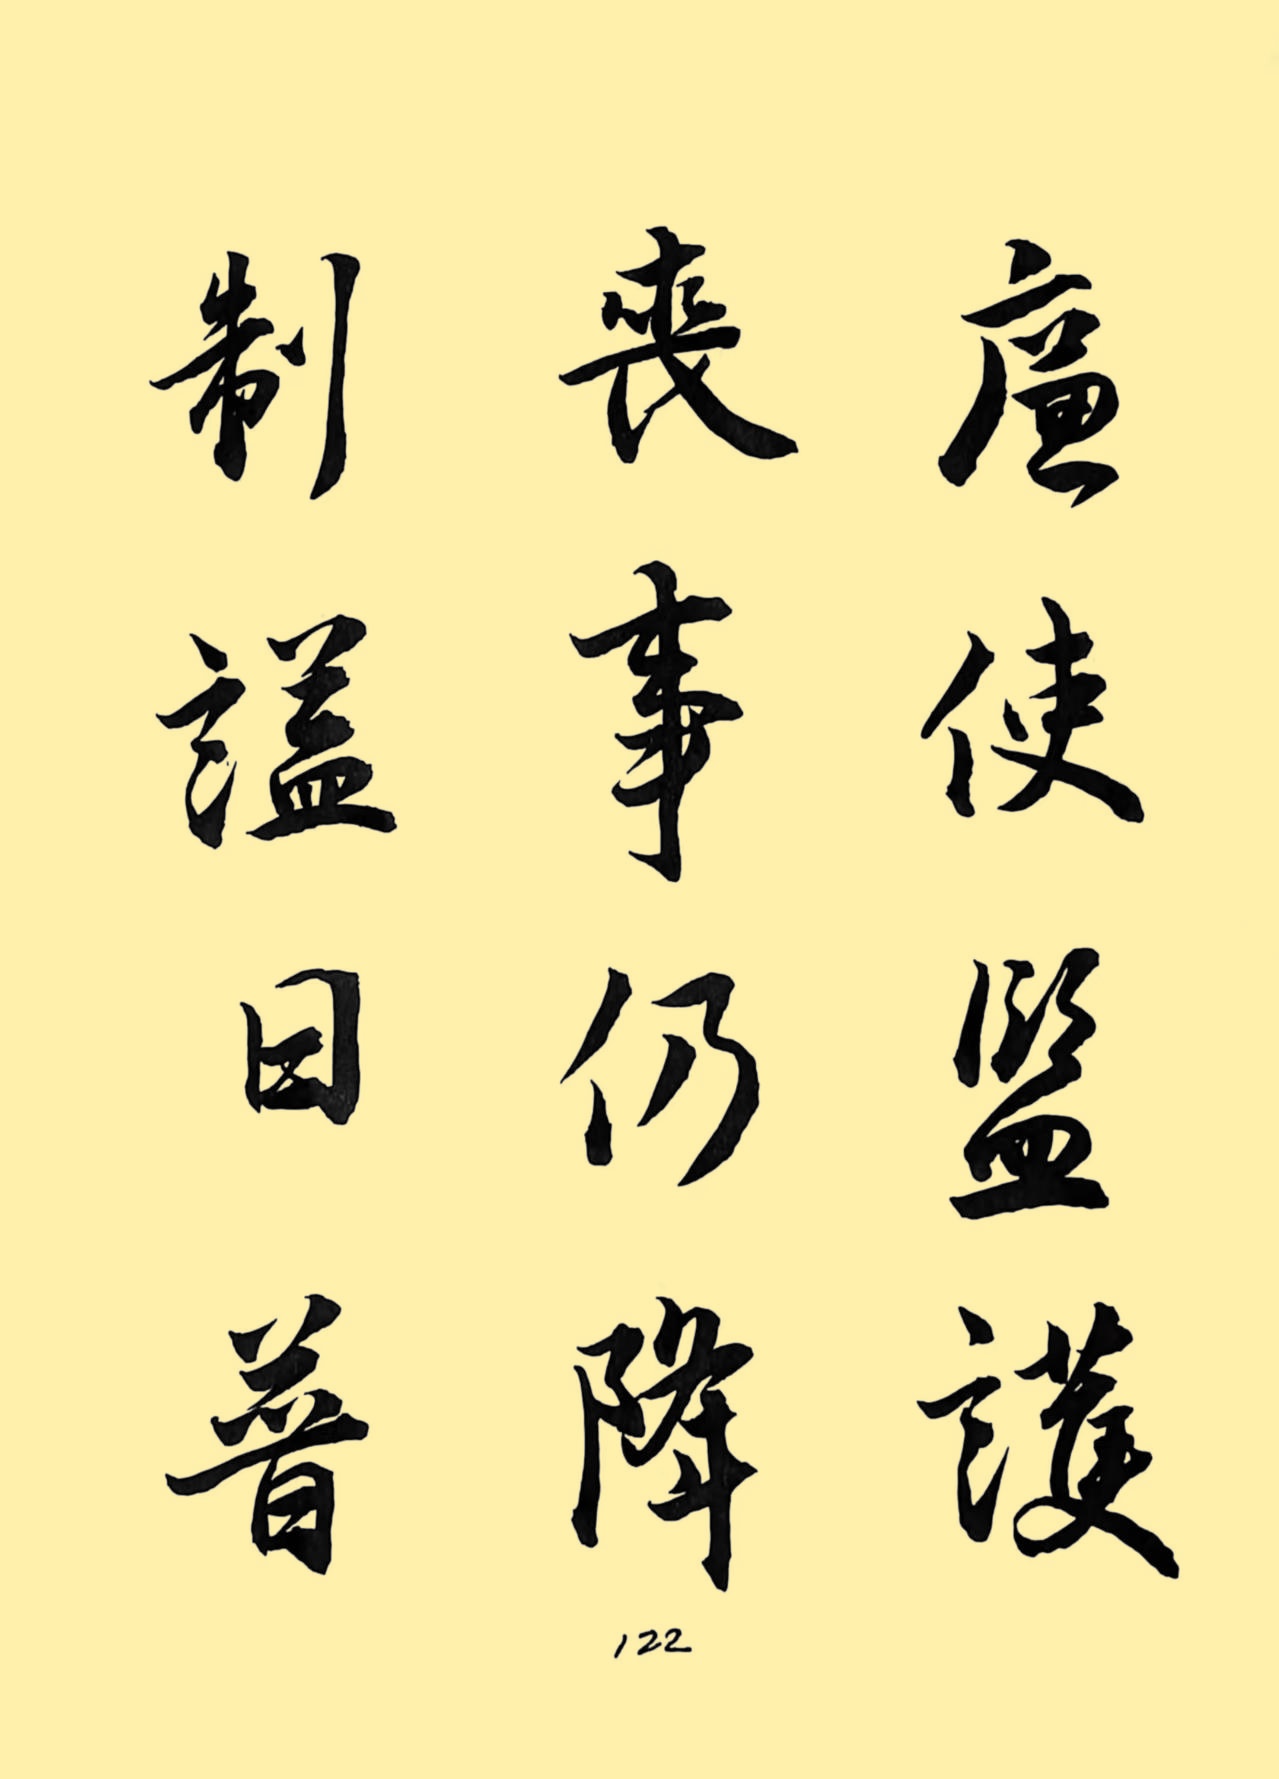 廉使監護
喪事仍降
制謚曰普
122